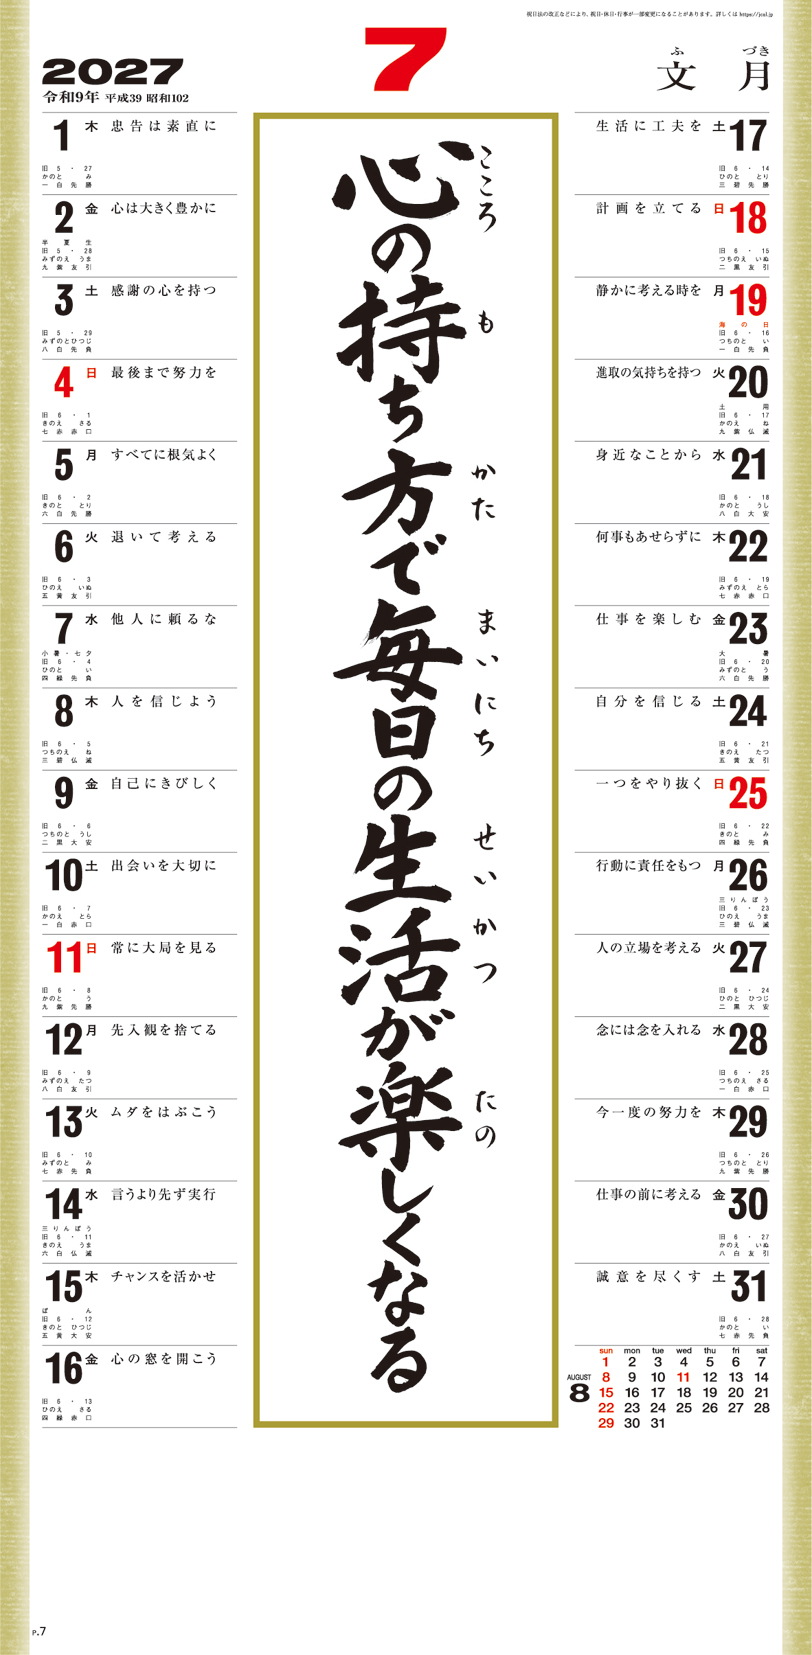 祝日法の改正などにより、祝日・休日・行事が一部変更になることがあります。詳しくは https://jcal.jp
2027
令和9年 平成39 昭和102
7
ふ づき
文 月
1 木 忠告は素直に
旧 5 ・ 27
かのと み
一白先勝
2 金 心は大きく豊かに
半夏生
旧 5 ・ 28
みずのえ うま
九紫友引
3 土 感謝の心を持つ
旧 5 ・ 29
みずのとひつじ
八白先負
4 日 最後まで努力を
旧 6 ・ 1
きのえ さる
七赤赤口
5 月 すべてに根気よく
旧 6 ・ 2
きのと とり
六白先勝
6 火 退いて考える
旧 6 ・ 3
ひのえ いぬ
五黄友引
7 水 他人に頼るな
小暑・七夕
旧 6 ・ 4
ひのと い
四緑先負
8 木 人を信じよう
旧 6 ・ 5
つちのえ ね
三碧仏滅
9 金 自己にきびしく
旧 6 ・ 6
つちのと うし
二黒大安
10 土 出会いを大切に
旧 6 ・ 7
かのえ とら
一白赤口
11 日 常に大局を見る
旧 6 ・ 8
かのと う
九紫先勝
12 月 先入観を捨てる
旧 6 ・ 9
みずのえ たつ
八白友引
13 火 ムダをはぶこう
旧 6 ・ 10
みずのと み
七赤先負
14 水 言うより先ず実行
三りんぼう
旧 6 ・ 11
きのえ うま
六白仏滅
15 木 チャンスを活かせ
ぼん
旧 6 ・ 12
きのと ひつじ
五黄大安
16 金 心の窓を開こう
旧 6 ・ 13
ひのえ さる
四緑赤口
心の持ち方で毎日の生活が楽しくなる
こころ も かた まいにち せいかつ たの
生活に工夫を 土 17
旧 6 ・ 14
ひのと とり
三碧先勝
計画を立てる 日 18
旧 6 ・ 15
つちのえ いぬ
二黒友引
静かに考える時を 月 19
海の日
旧 6 ・ 16
つちのと い
一白先負
進取の気持ちを持つ 火 20
土用
旧 6 ・ 17
かのえ ね
九紫仏滅
身近なことから 水 21
旧 6 ・ 18
かのと うし
八白大安
何事もあせらずに 木 22
旧 6 ・ 19
みずのえ とら
七赤赤口
仕事を楽しむ 金 23
大暑
旧 6 ・ 20
みずのと う
六白先勝
自分を信じる 土 24
旧 6 ・ 21
きのえ たつ
五黄友引
一つをやり抜く 日 25
旧 6 ・ 22
きのと み
四緑先負
行動に責任をもつ 月 26
三りんぼう
旧 6 ・ 23
ひのえ うま
三碧仏滅
人の立場を考える 火 27
旧 6 ・ 24
ひのと ひつじ
二黒大安
念には念を入れる 水 28
旧 6 ・ 25
つちのえ さる
一白赤口
今一度の努力を 木 29
旧 6 ・ 26
つちのと とり
九紫先勝
仕事の前に考える 金 30
旧 6 ・ 27
かのえ いぬ
八白友引
誠意を尽くす 土 31
旧 6 ・ 28
かのと い
七赤先負
AUGUST
8
sun mon tue wed thu fri sat
1 2 3 4 5 6 7
8 9 10 11 12 13 14
15 16 17 18 19 20 21
22 23 24 25 26 27 28
29 30 31
P.7